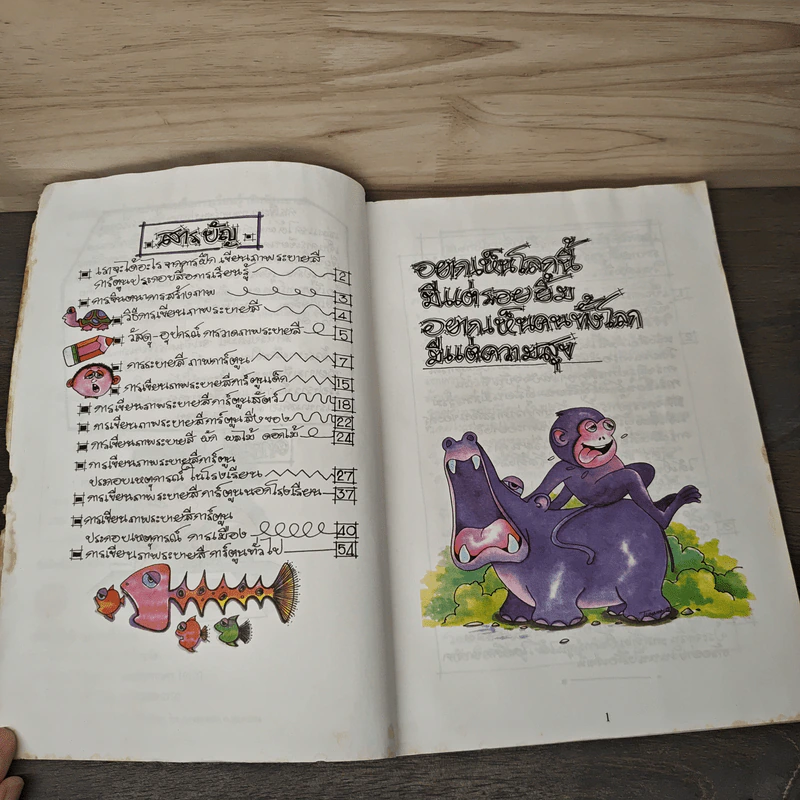 สารบัญ
เราจะได้อะไรจากการฝึก เขียนภาพระบายสี
การ์ตูนประกอบสื่อการเรียนรู้ 2
การจินตนาการสร้างภาพ 3
วิธีการเขียนภาพระบายสี 4
วัสดุ-อุปกรณ์ การวาดภาพระบายสี 5
การระบายสี ภาพการ์ตูน 7
การเขียนภาพระบายสีการ์ตูนเด็ก 15
การเขียนภาพระบายสีการ์ตูนสัตว์ 18
การเขียนภาพระบายสีการ์ตูนสิ่งของ 22
การเขียนภาพระบายสี ผัก ผลไม้ ดอกไม้ 24
การเขียนภาพระบายสีการ์ตูน
ประกอบเหตุการณ์ ในโรงเรียน 27
การเขียนภาพระบายสีการ์ตูนนอกโรงเรียน 37
การเขียนภาพระบายสีการ์ตูน
ประกอบเหตุการณ์ การเมือง 40
การเขียนภาพระบายสี การ์ตูนทั่วไป 54
อยากเห็นโลกนี้
มีแต่รอยยิ้ม
อยากเห็นคนทั้งโลก
มีแต่ความสุข
1